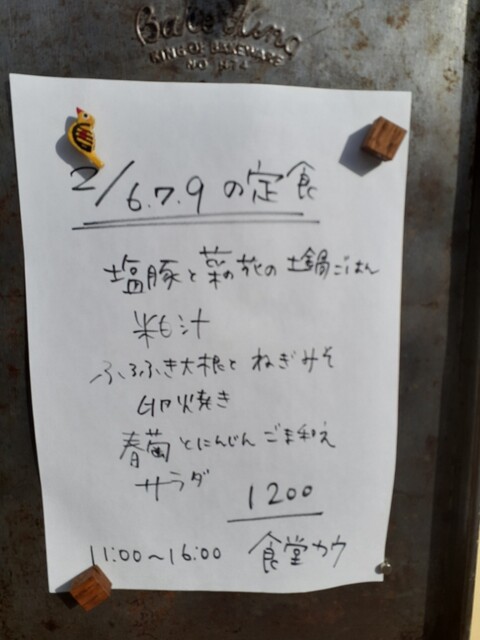 Bake King
KING OF BAKEWARE
2/6.7.9 の定食
塩豚と菜の花の土鍋ごはん
粕汁
ふろふき大根と ねぎみそ
卵焼き
春菊とにんじん ごま和え
サラダ
1200
11:00～16:00 食堂カウ